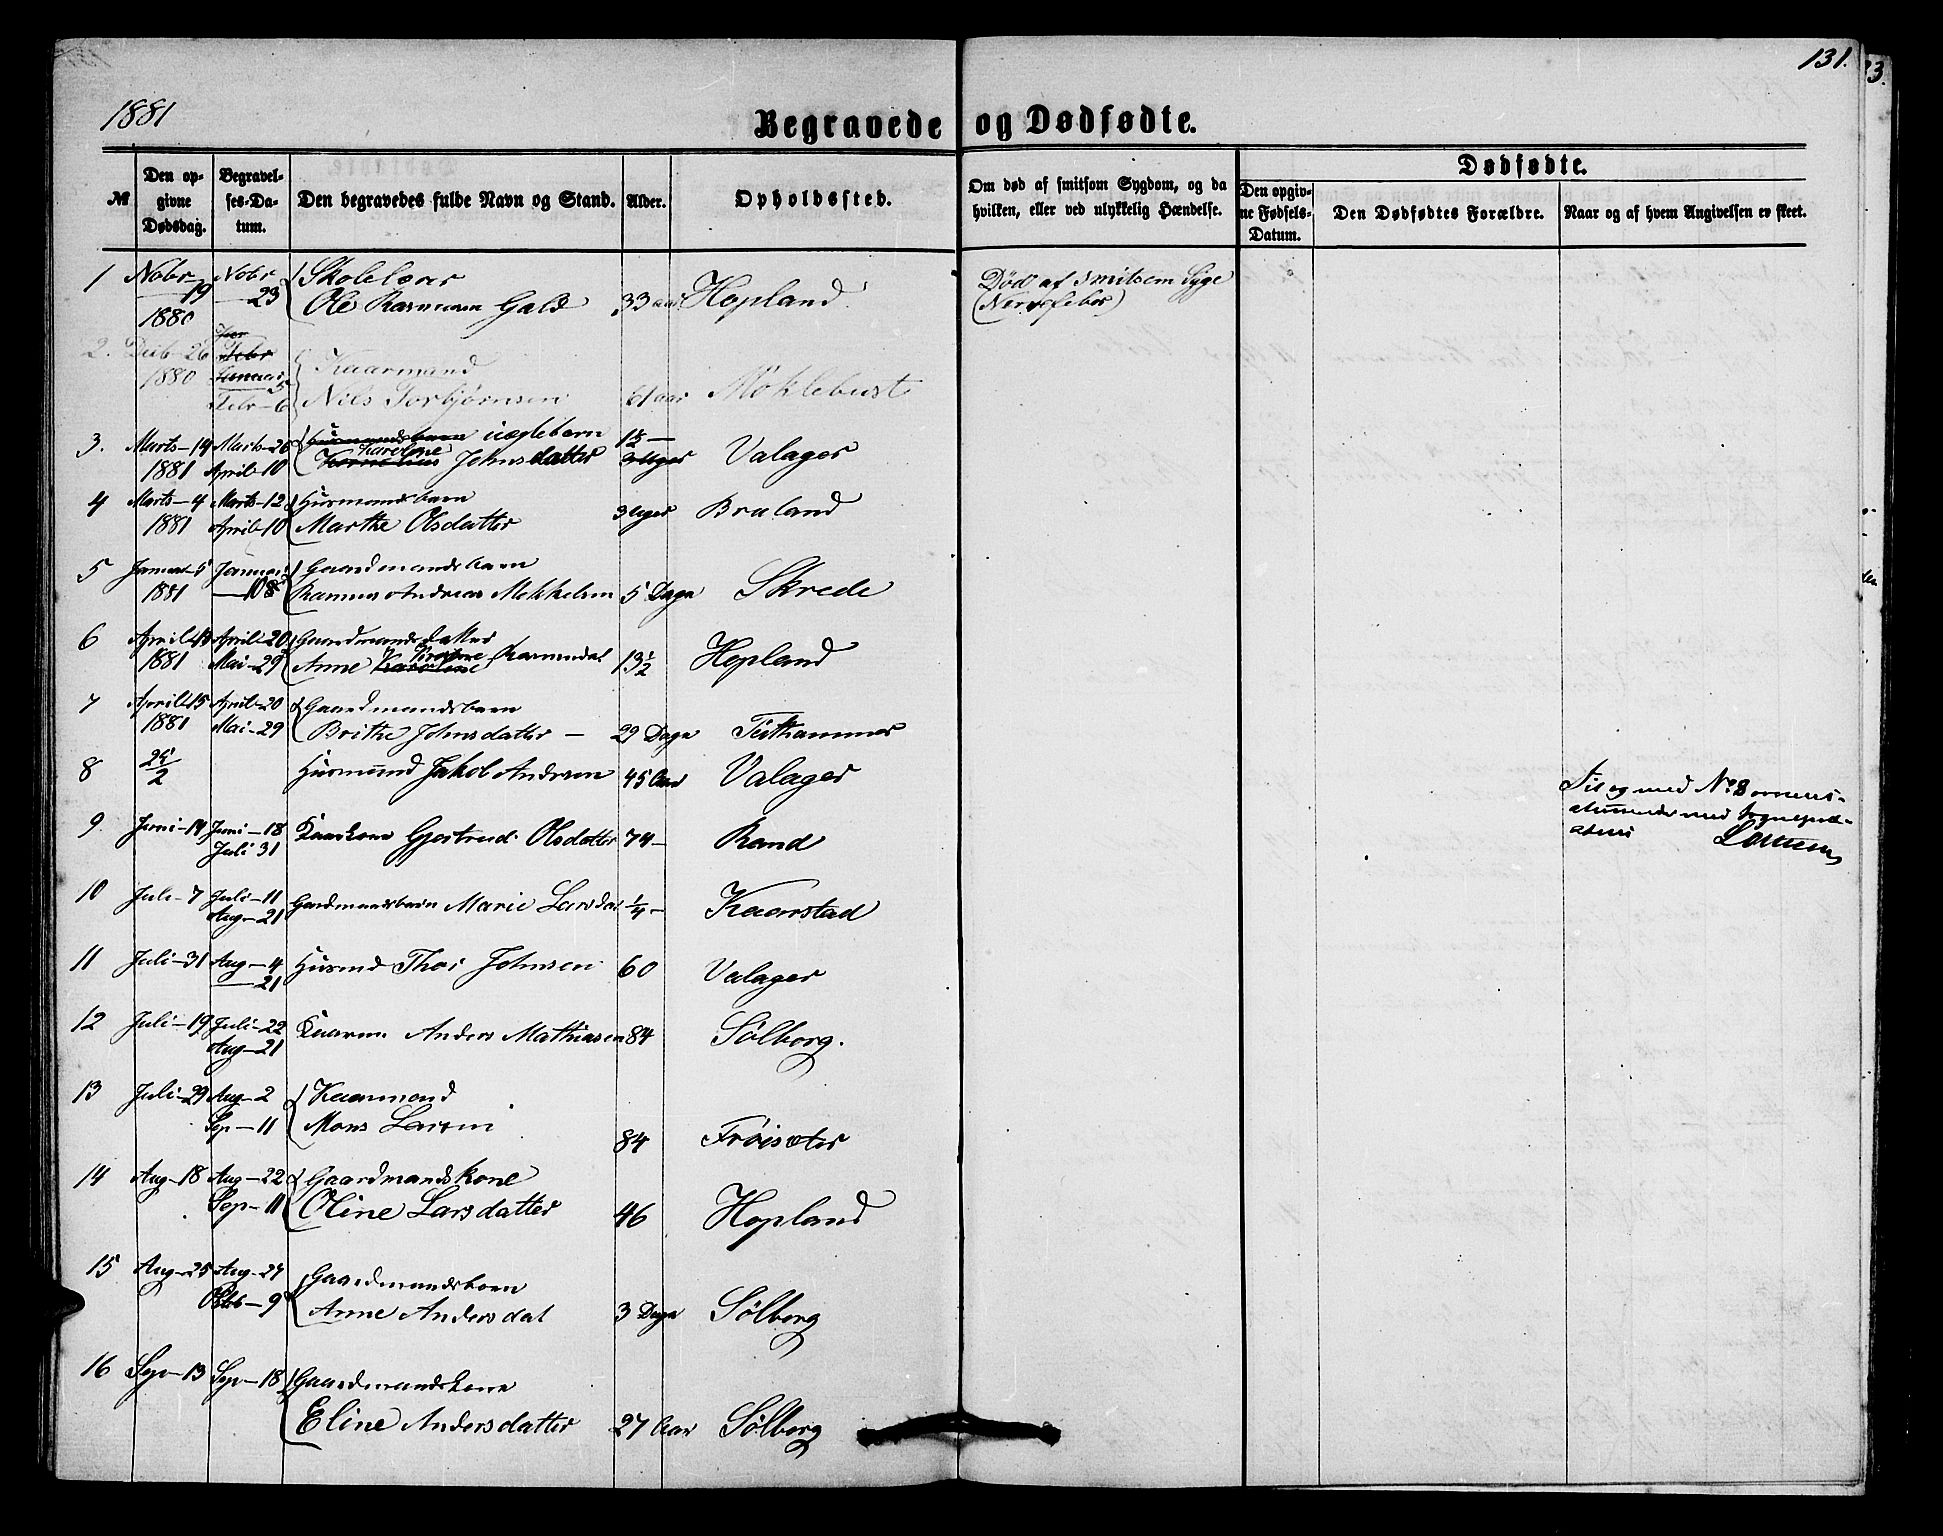 131.
1881
Begravede og Dødfødte.
№
Den opgivne Dødsdag.
Begravelses-Datum.
Den begravedes fulde Navn og Stand.
Alder.
Opholdssted.
Om død af smitsom Sygdom, og da hvilken, eller ved ulykkelig Hændelse.
Dødfødte.
Den opgivne Fødsels-Datum.
Den Dødfødtes Forældre.
Naar og af hvem Angivelsen er skeet.
1 Nobr 19 1880 Nobr 23 Skolelærer
Ole Rasmusen Gald 33 aar Hopland Død af Smitsom Syge (Nervefeber)
2. Deib-26 1880 Febr Januar 5 Febr-6 Kaarmand
Nils Torbjørnsen 61 aar Møklebust
3. Marts-14 1881 Marts-26 April-10 Husmandsbarn uægtebarn
Kornelius Karoline Johnsdatter 1½ - 3 Uger Valager
4 Marts-4 1881 Marts-12 April-10 Husmandsbarn
Marthe Olsdatter 3 Uger Bruland
5 Januar-5 1881 Januar 108 Gaardmandsbarn
Rasmus Andreas Mekkelsen 5 Dage Skrede
6 April-13 1881 April-20 Mai-29 Gaardmandsdatter
Anne Karoline Rasmusdat 13½ Hopland
7 April-15 1881 April-20 Mai-29 Gaardmandsbarn
Brithe Johnsdatter - 29 Dage
8 24/2 Husmand Jakob Andersen 45 Aar Valager
Til og med No 8
9. Juni-14 Juni-18 Juli 31 Kaarkone Gjertrud Olsdatter 74- Rand
10 Juli-7 Juli-11 Aug-21 Gardmandsbarn Marie Larsdat ¼- Kaarstad
11 Juli-31 Aug-4 21 Husmd Thor Johnsen 60 Valager
12 Juli-19 Juli-22 Aug-21 Anders Mathiasen 84 Sølborg.
13 Juli-29 Aug-2 Sep-11 Kaarmand
Mons Larsen 84 Frøisæter
14 Aug-18 Aug-22 Sep-11 Gaardmandskone
Oline Larsdatter 46 Hopland
15 Aug-25 Aug-27 Oktb-9 Gaardmandsbarn
Anne Andersdat 3 Dage Sølborg
16 Sep-13 Sep-18 Gaardmandskone
Eline Andersdatter 27 Aar Sølborg